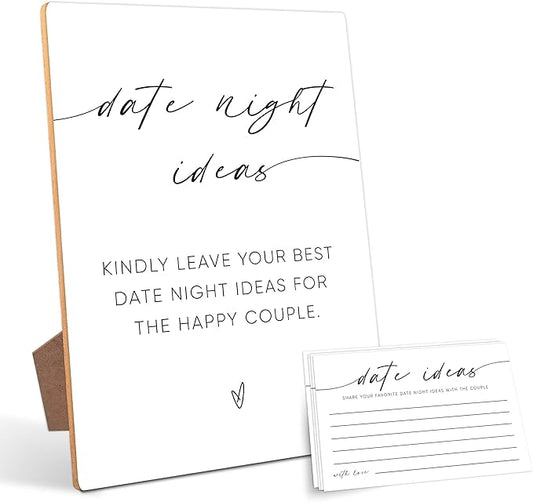 date night
ideas
KINDLY LEAVE YOUR BEST
DATE NIGHT IDEAS FOR
THE HAPPY COUPLE.
date ideas
SHARE YOUR FAVORITE DATE NIGHT IDEAS WITH THE COUPLE
with love